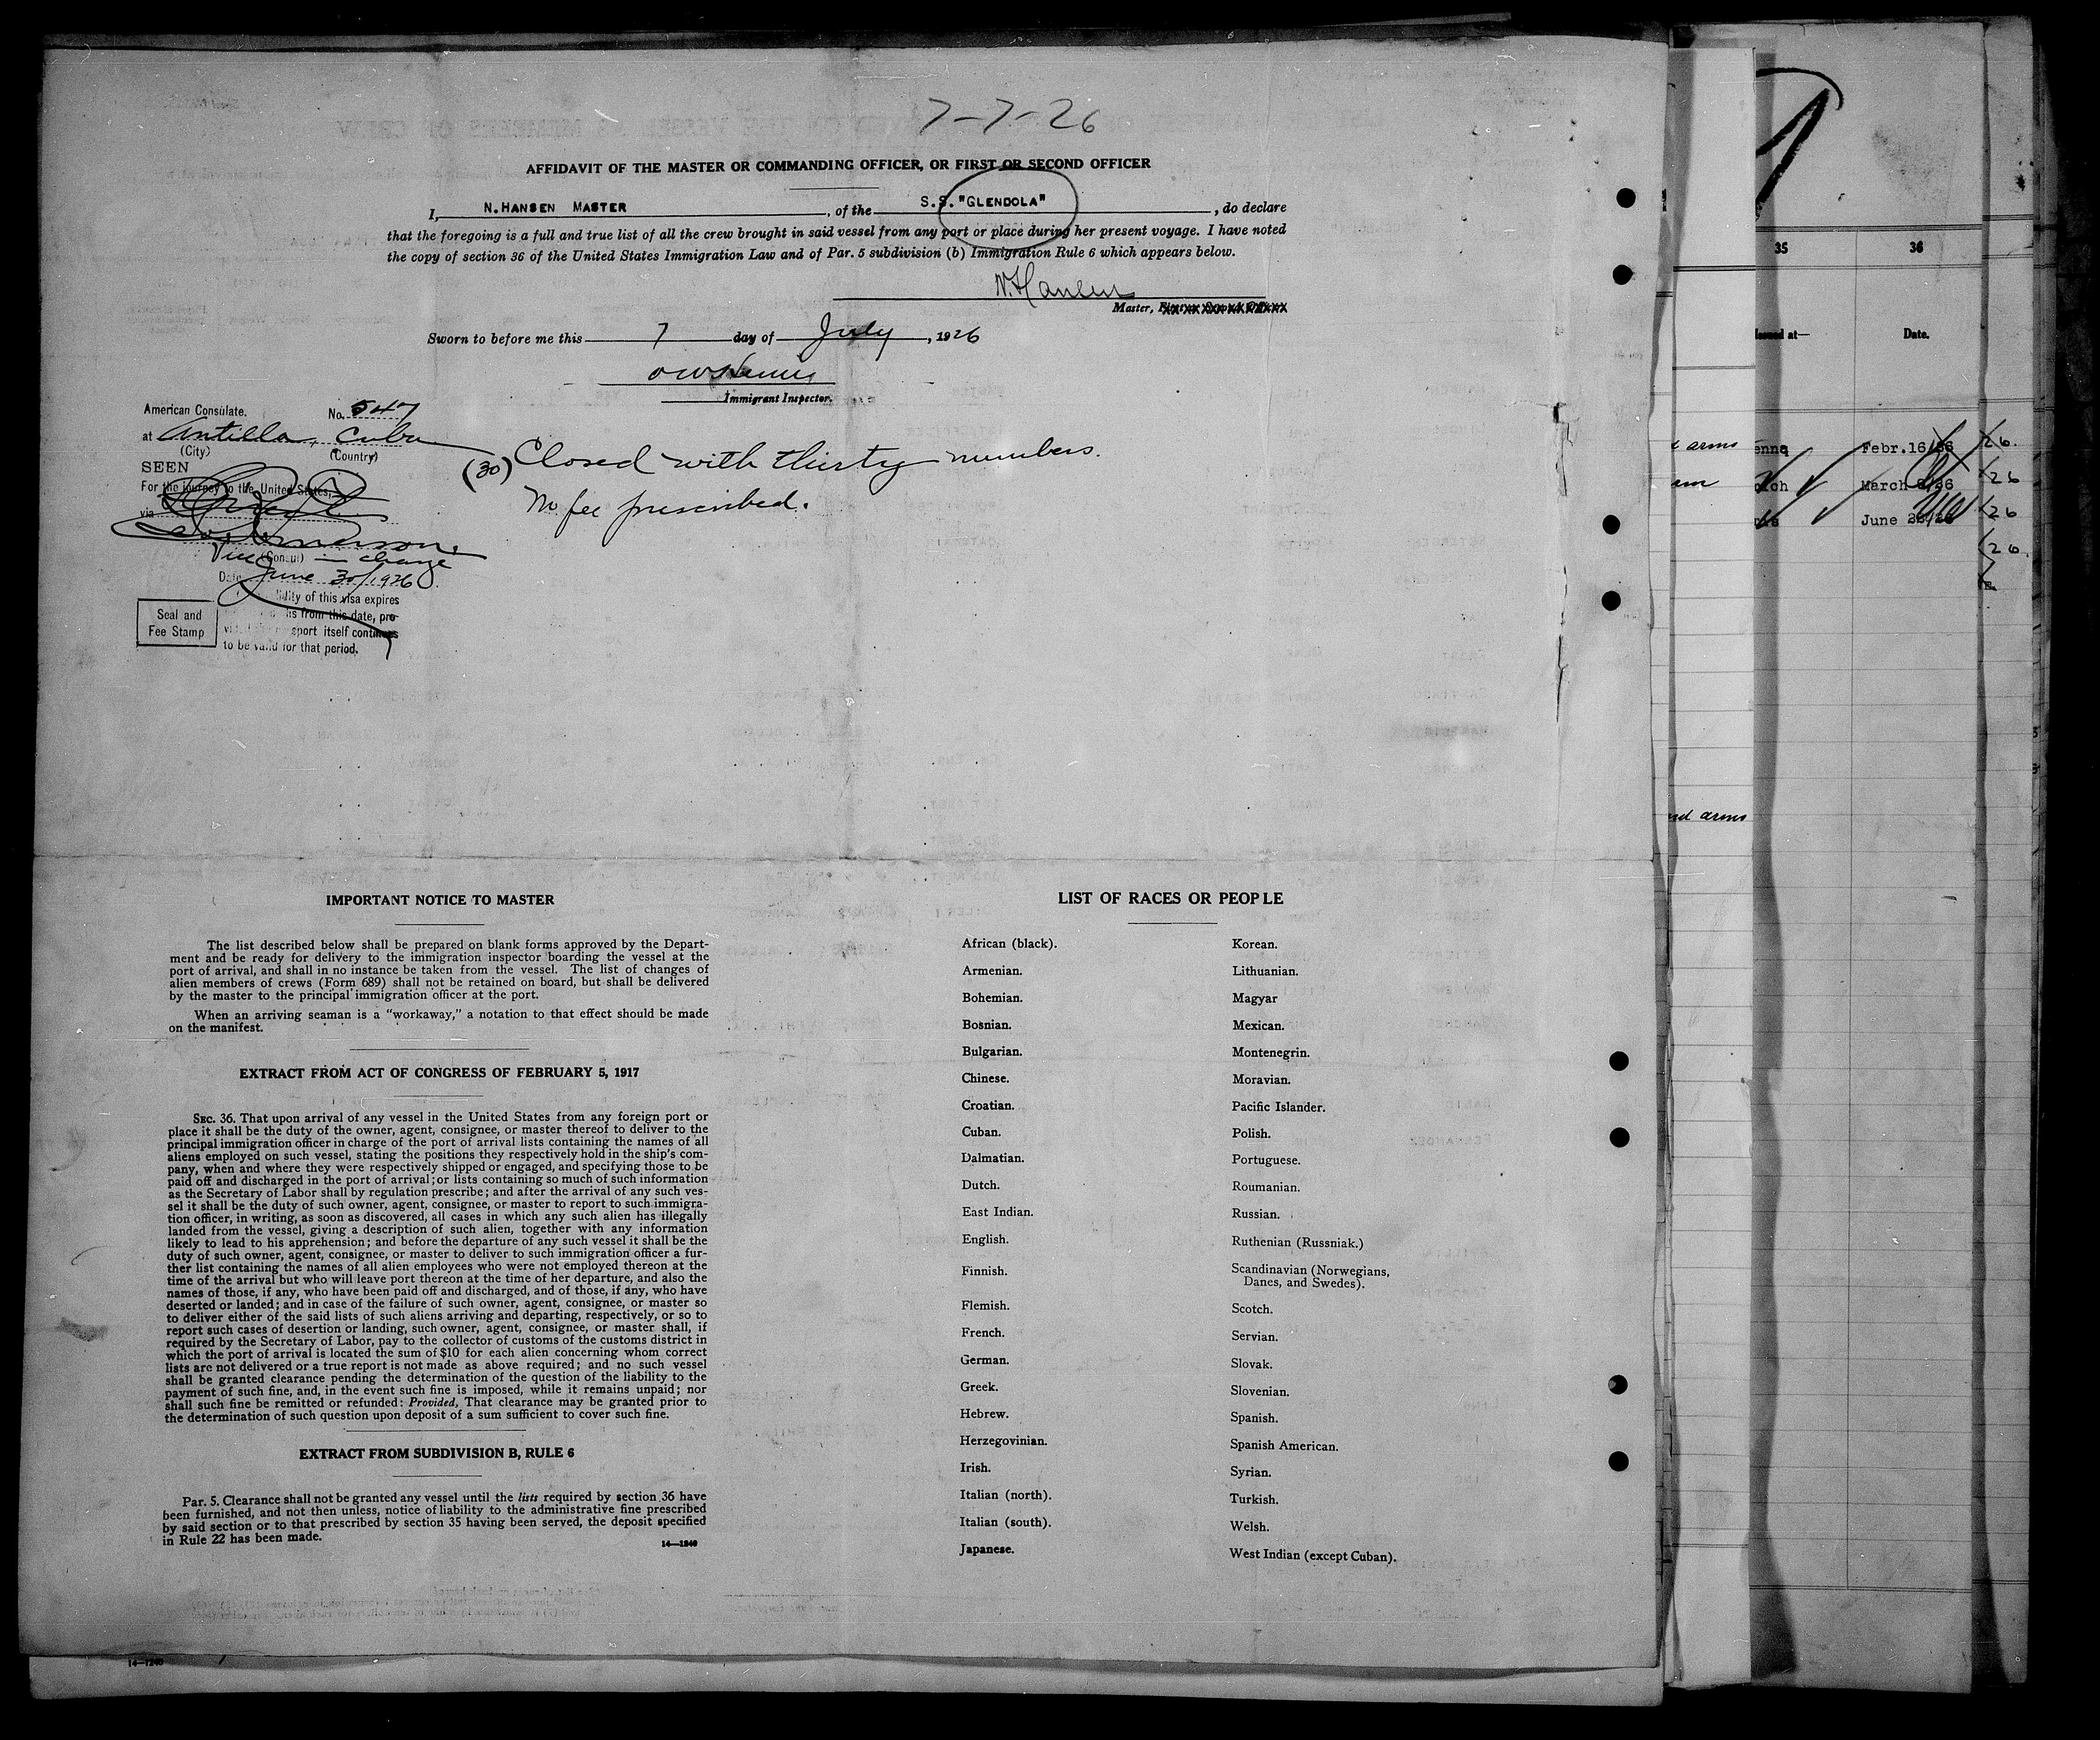 7-7-26
AFFIDAVIT OF THE MASTER OR COMMANDING OFFICER, OR FIRST OR SECOND OFFICER
I, N.HANSEN MASTER, of the S.S. "GLENDOLA", do declare
that the foregoing is a full and true list of all the crew brought in said vessel from any port or place during her present voyage. I have noted
the copy of section 36 of the United States Immigration Law and of Par. 5 subdivision (b) Immigration Rule 6 which appears below.
N. Hansen
Master,
Sworn to before me this 7 day of July, 1926
Immigrant Inspector.
American Consulate. No. 547
at Antilla, Cuba
(City) (Country)
SEEN
For the journey to the United States,
via
Vice (Consul) in charge
Date June 30/1926
validity of this visa expires
from this date, pro-
sport itself continues
to be valid for that period.
Seal and
Fee Stamp
(30) Closed with thirty numbers.
No fee prescribed.
IMPORTANT NOTICE TO MASTER
The list described below shall be prepared on blank forms approved by the Depart-
ment and be ready for delivery to the immigration inspector boarding the vessel at the
port of arrival, and shall in no instance be taken from the vessel. The list of changes of
alien members of crews (Form 689) shall not be retained on board, but shall be delivered
by the master to the principal immigration officer at the port.
When an arriving seaman is a “workaway,” a notation to that effect should be made
on the manifest.
EXTRACT FROM ACT OF CONGRESS OF FEBRUARY 5, 1917
SEC. 36. That upon arrival of any vessel in the United States from any foreign port or
place it shall be the duty of the owner, agent, consignee, or master thereof to deliver to the
principal immigration officer in charge of the port of arrival lists containing the names of all
aliens employed on such vessel, stating the positions they respectively hold in the ship's com-
pany, when and where they were respectively shipped or engaged, and specifying those to be
paid off and discharged in the port of arrival; or lists containing so much of such information
as the Secretary of Labor shall by regulation prescribe; and after the arrival of any such ves-
sel it shall be the duty of such owner, agent, consignee, or master to report to such immigra-
tion officer, in writing, as soon as discovered, all cases in which any such alien has illegally
landed from the vessel, giving a description of such alien, together with any information
likely to lead to his apprehension; and before the departure of any such vessel it shall be the
duty of such owner, agent, consignee, or master to deliver to such immigration officer a fur-
ther list containing the names of all alien employees who were not employed thereon at the
time of the arrival but who will leave port thereon at the time of her departure, and also the
names of those, if any, who have been paid off and discharged, and of those, if any, who have
deserted or landed; and in case of the failure of such owner, agent, consignee, or master so
to deliver either of the said lists of such aliens arriving and departing, respectively, or so to
report such cases of desertion or landing, such owner, agent, consignee, or master shall, if
required by the Secretary of Labor, pay to the collector of customs of the customs district in
which the port of arrival is located the sum of $10 for each alien concerning whom correct
lists are not delivered or a true report is not made as above required; and no such vessel
shall be granted clearance pending the determination of the question of the liability to the
payment of such fine, and, in the event such fine is imposed, while it remains unpaid; nor
shall such fine be remitted or refunded: Provided, That clearance may be granted prior to
the determination of such question upon deposit of a sum sufficient to cover such fine.
EXTRACT FROM SUBDIVISION B, RULE 6
Par. 5. Clearance shall not be granted any vessel until the lists required by section 36 have
been furnished, and not then unless, notice of liability to the administrative fine prescribed
by said section or to that prescribed by section 35 having been served, the deposit specified
in Rule 22 has been made.
14—1240
LIST OF RACES OR PEOPLE
African (black).
Armenian.
Bohemian.
Bosnian.
Bulgarian.
Chinese.
Croatian.
Cuban.
Dalmatian.
Dutch.
East Indian.
English.
Finnish.
Flemish.
French.
German.
Greek.
Hebrew.
Herzegovinian.
Irish.
Italian (north).
Italian (south).
Japanese.
Korean.
Lithuanian.
Magyar
Mexican.
Montenegrin.
Moravian.
Pacific Islander.
Polish.
Portuguese.
Roumanian.
Russian.
Ruthenian (Russniak.)
Scandinavian (Norwegians,
Danes, and Swedes).
Scotch.
Servian.
Slovak.
Slovenian.
Spanish.
Spanish American.
Syrian.
Turkish.
Welsh.
West Indian (except Cuban).
14—1240
35 36
Issued at— Date.
arms Febr.16/26 26.
March 26
June 26
26.
and arms